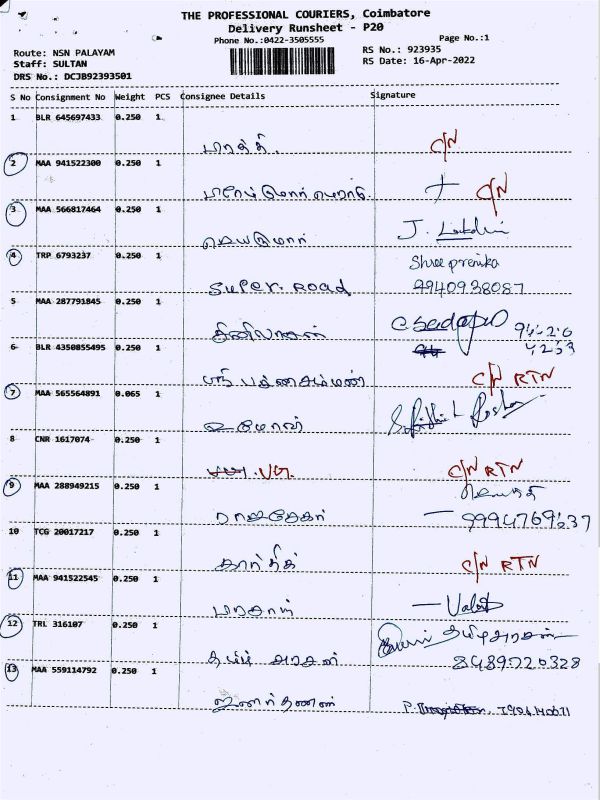 THE PROFESSIONAL COURIERS, Coimbatore
Delivery Runsheet - P20
Phone No.:0422-3505555
Page No.:1
Route: NSN PALAYAM
RS No.: 923935
Staff: SULTAN
RS Date: 16-Apr-2022
DRS No.: DCJB92393501
S No Consignment No Weight PCS Consignee Details Signature
1 BLR 645697433 0.250 1
C/N
2 MAA 941522300 0.250 1
C/N
3 MAA 566817464 0.250 1
ஜெயகுமார் J.
4 TRP 6793237 0.250 1 Shree prenika
SUPER. ROAD 9940938087
5 MAA 287791845 0.250 1
சீனிவாசன்
6 BLR 4350855495 0.250 1
C/N RTN
7 MAA 565564891 0.065 1
8 CNR 1617074 0.250 1
C/N RTN
9 MAA 288949215 0.250 1
ராஜசேகர் 9994769637
10 TCG 20017217 0.250 1
கார்த்திக் C/N RTN
11 MAA 941522545 0.250 1
12 TRL 316107 0.250 1 தமிழ்அரசன்
தமிழ் அரசன் 8489720328
13 MAA 559114792 0.250 1